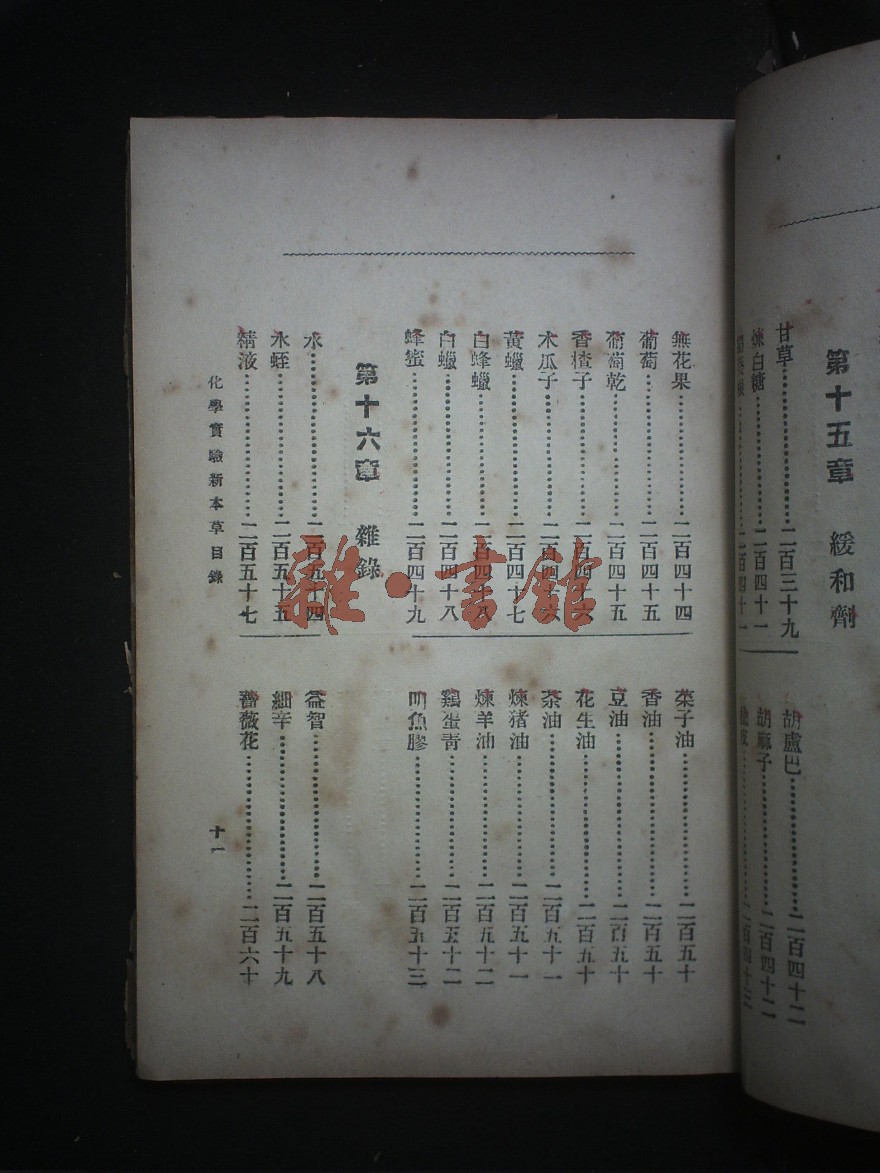 第十五章　緩和劑
甘草……二百三十九
煉白糖……二百四十一
二百四十一
胡盧巴……二百四十二
胡麻子……二百四十二
皮……二百四十三
無花果……二百四十四
葡萄……二百四十五
葡萄乾……二百四十五
香楂子……二百四十六
木瓜子……二百四十六
黃蠟……二百四十七
白蜂蠟……二百四十八
白蠟……二百四十八
蜂蜜……二百四十九
菜子油……二百五十
香油……二百五十
豆油……二百五十
花生油……二百五十
茶油……二百五十一
煉猪油……二百五十一
煉羊油……二百五十二
鷄蛋青……二百五十二
魚膠……二百五十三
第十六章　雜錄
水……二百五十四
水蛭……二百五十五
精液……二百五十七
益智……二百五十八
細辛……二百五十九
薔薇花……二百六十
化學實驗新本草目錄
十一
雜·書館